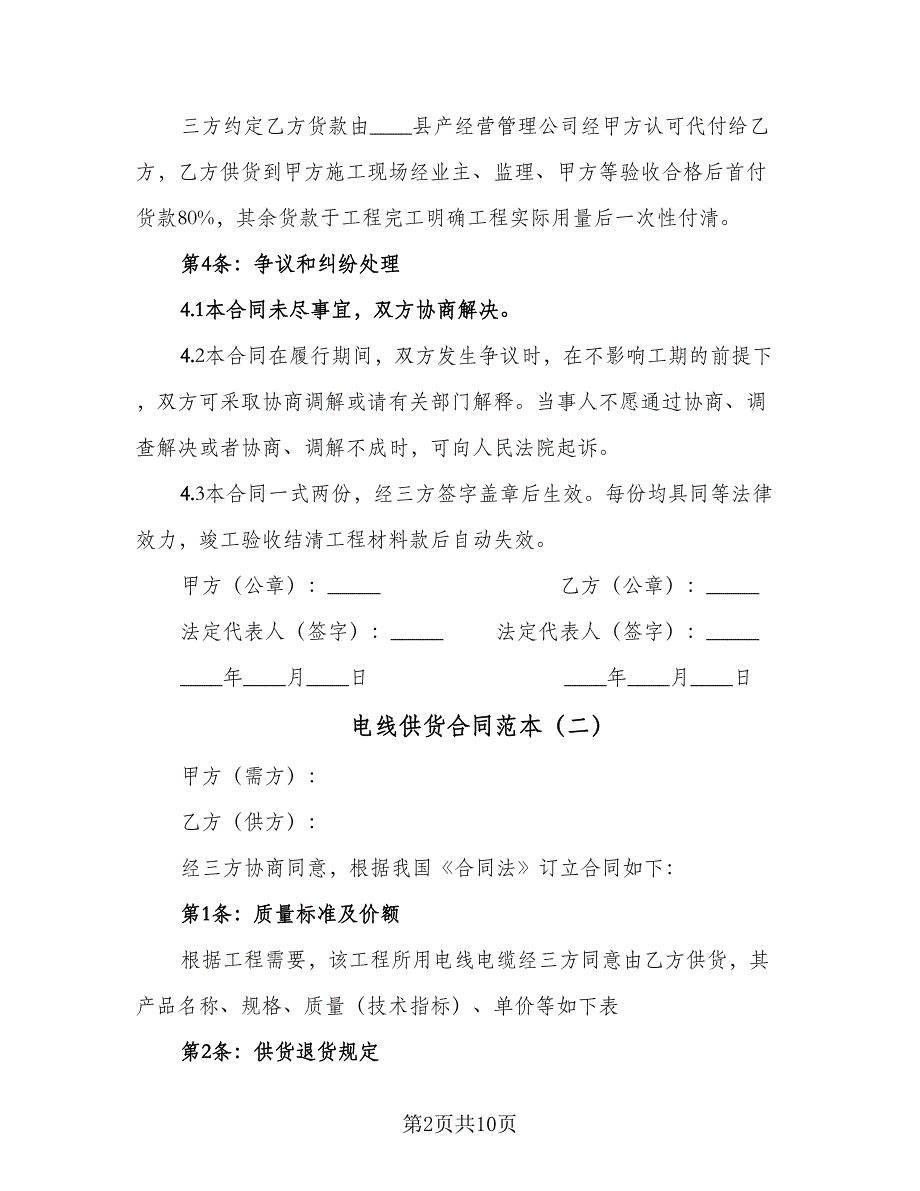 三方约定乙方货款由____县产经营管理公司经甲方认可代付给乙
方，乙方供货到甲方施工现场经业主、监理、甲方等验收合格后首付
货款80%，其余货款于工程完工明确工程实际用量后一次性付清。
第4条：争议和纠纷处理
4.1本合同未尽事宜，双方协商解决。
4.2本合同在履行期间，双方发生争议时，在不影响工期的前提下
，双方可采取协商调解或请有关部门解释。当事人不愿通过协商、调
查解决或者协商、调解不成时，可向人民法院起诉。
4.3本合同一式两份，经三方签字盖章后生效。每份均具同等法律
效力，竣工验收结清工程材料款后自动失效。
甲方（公章）：_____ 乙方（公章）：_____
法定代表人（签字）：_____ 法定代表人（签字）：_____
____年____月____日 ____年____月____日
电线供货合同范本（二）
甲方（需方）：
乙方（供方）：
经三方协商同意，根据我国《合同法》订立合同如下：
第1条：质量标准及价额
根据工程需要，该工程所用电线电缆经三方同意由乙方供货，其
产品名称、规格、质量（技术指标）、单价等如下表
第2条：供货退货规定
第2页共10页